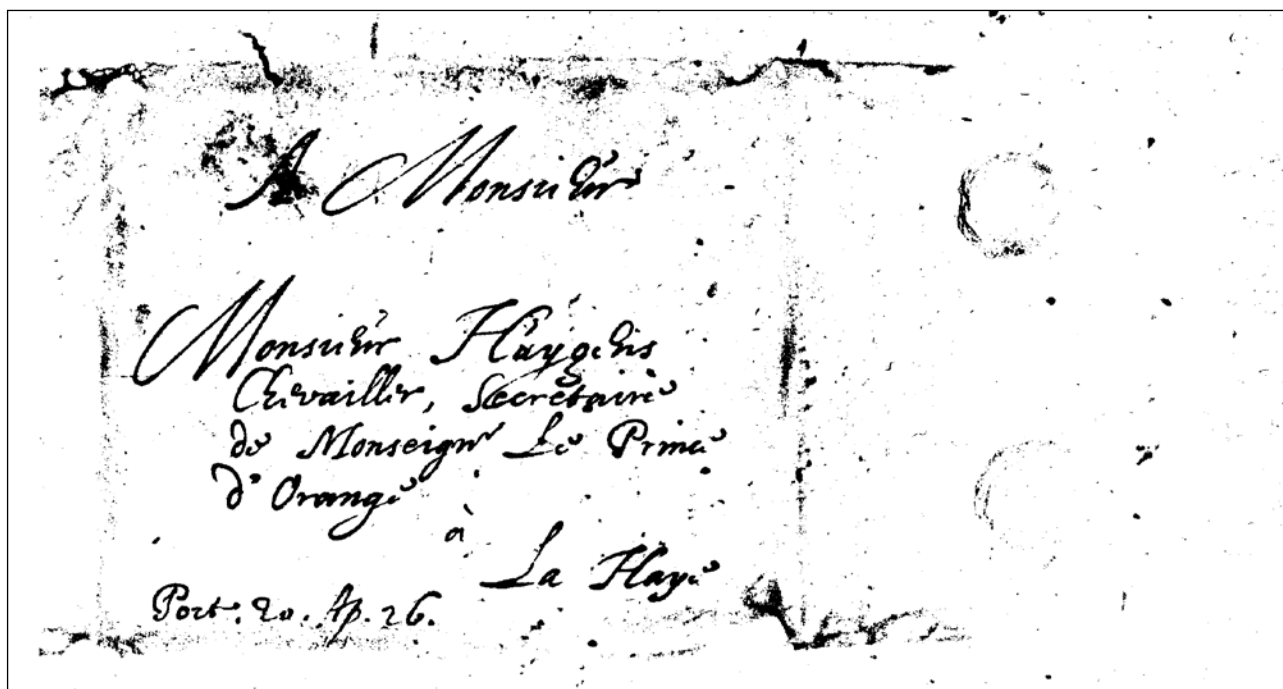 A Monsieur
Monsieur Huygens
Chevallier, Secretaire
de Monseignr Le Prince
d'Orange
à
La Haye
Port. 20. Ap. 26.